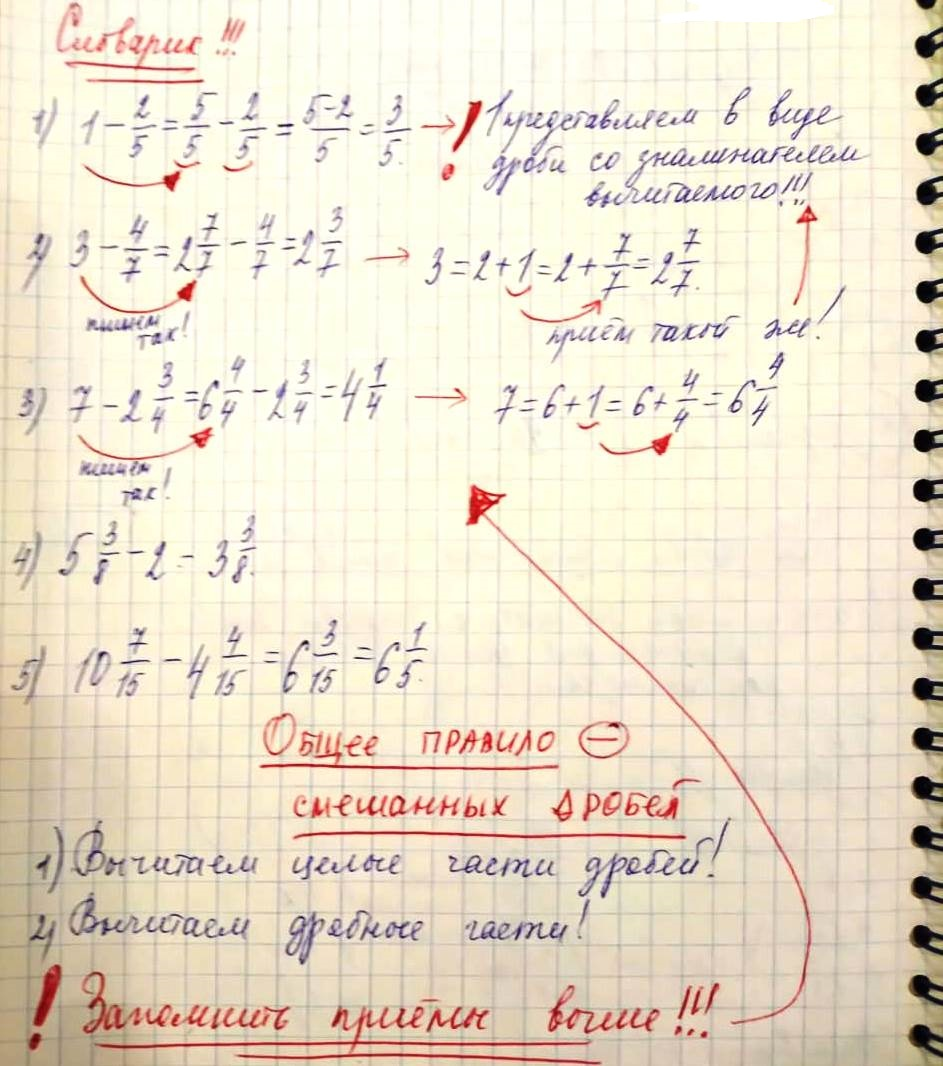 Словарик!!!
1) 1 - 2/5 = 5/5 - 2/5 = 5-2/5 = 3/5. → ! 1 представляем в виде
дроби со знаменателем
вычитаемого!!!
2) 3 - 4/7 = 2 7/7 - 4/7 = 2 3/7 → 3 = 2 + 1 = 2 + 7/7 = 2 7/7.
пишем
так!
приём такой же!
3) 7 - 2 3/4 = 6 4/4 - 2 3/4 = 4 1/4 → 7 = 6 + 1 = 6 + 4/4 = 6 4/4
пишем
так!
4) 5 3/8 - 2 = 3 3/8.
5) 10 7/15 - 4 4/15 = 6 3/15 = 6 1/5.
Общее правило ⊖
смешанных дробей
1) Вычитаем целые части дробей!
2) Вычитаем дробные части!
! Запомнить приёмы выше!!!